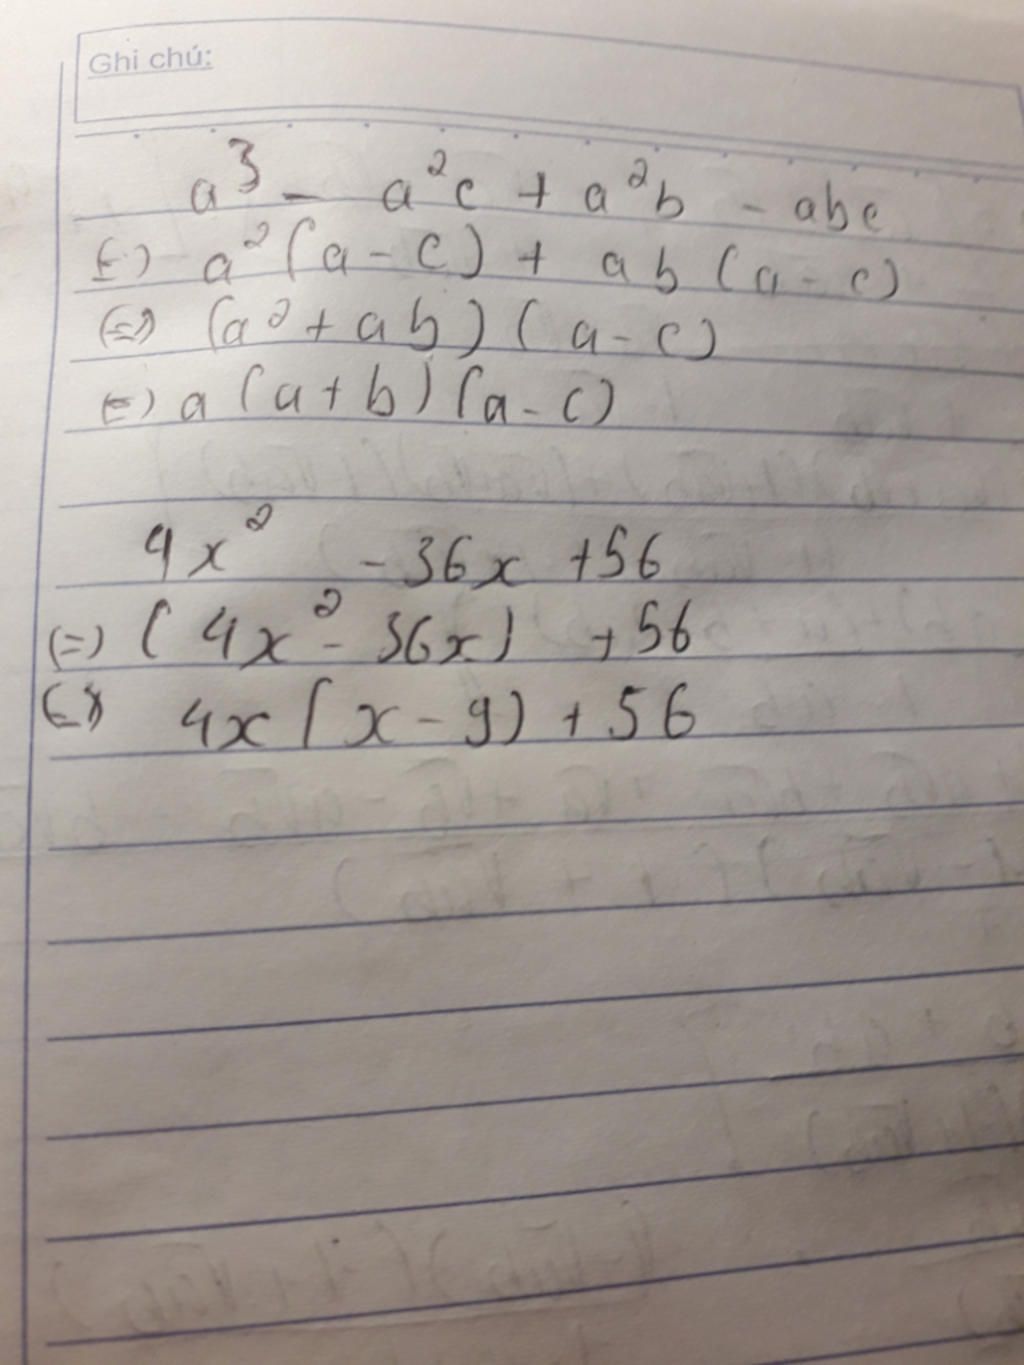 Ghi chú:
a³ - a²c + a²b - abc
(=) a²(a - c) + ab (a - c)
(=) (a² + ab) (a - c)
(=) a (a + b) (a - c)
4x² - 36x + 56
(=) (4x² - 36x) + 56
(=) 4x (x - 9) + 56